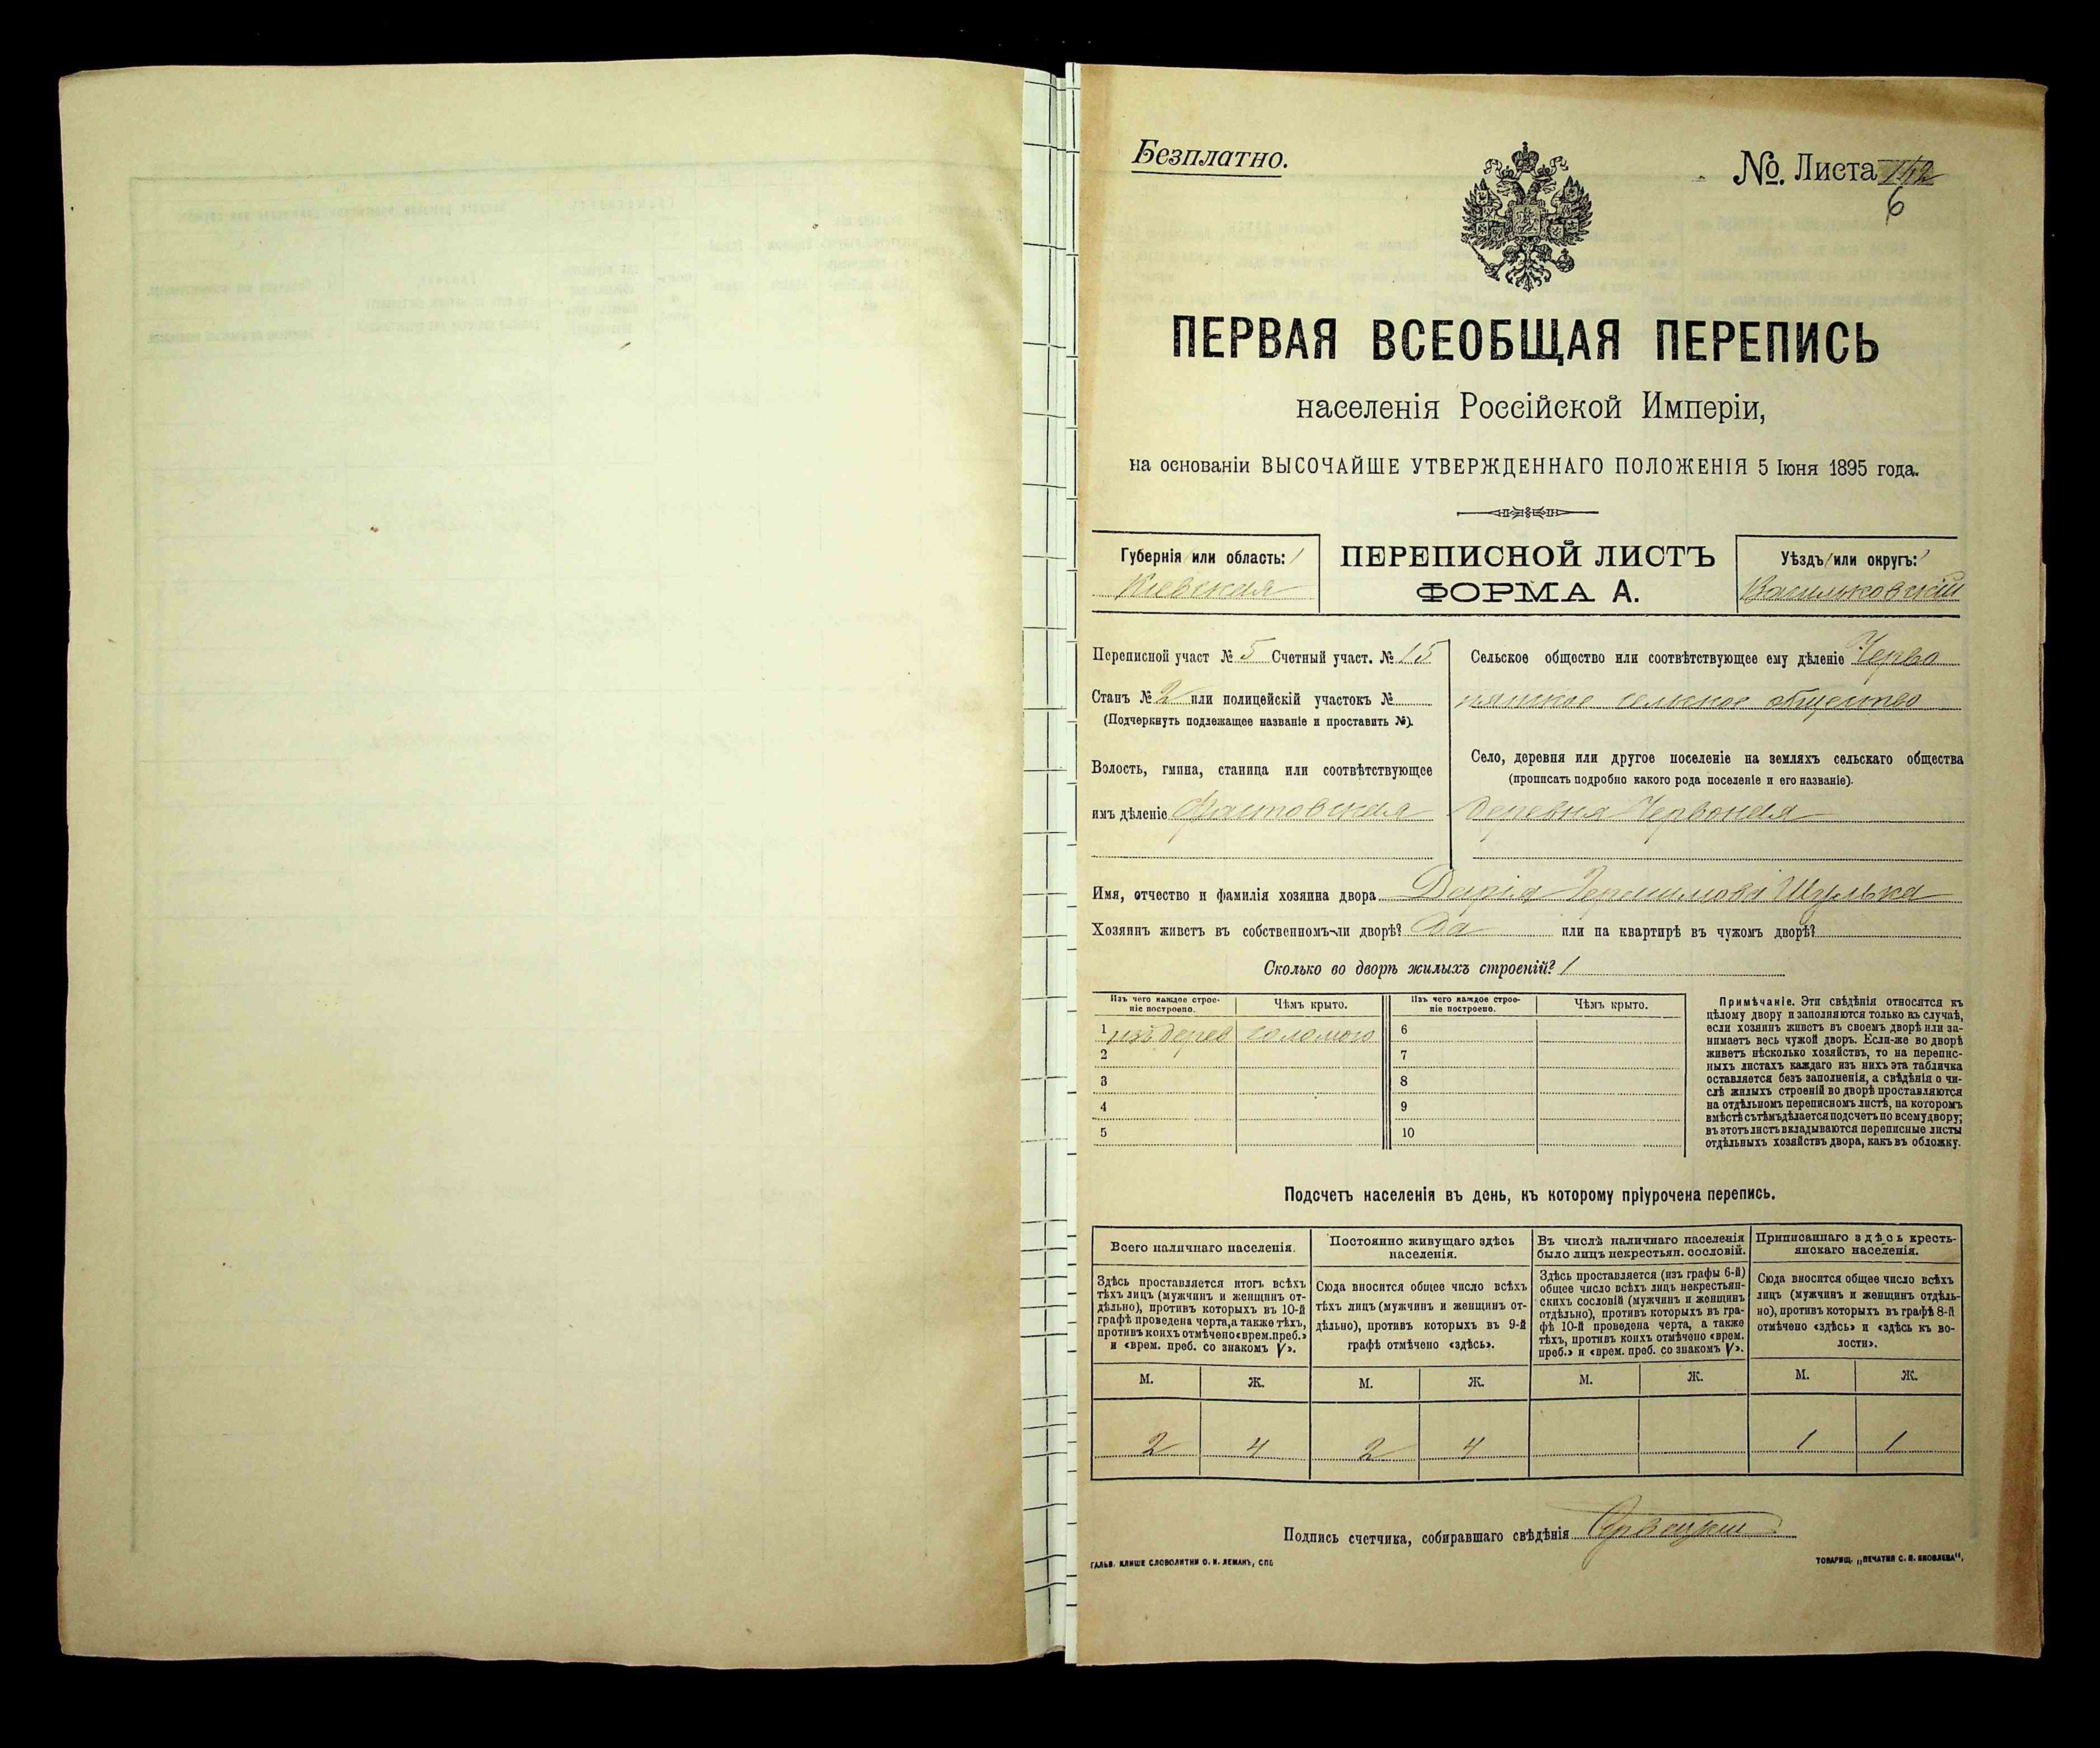 Безплатно.
№. Листа 142
6
ПЕРВАЯ ВСЕОБЩАЯ ПЕРЕПИСЬ
населенія Россійской Имперіи,
на основаніи ВЫСОЧАЙШЕ УТВЕРЖДЕННАГО ПОЛОЖЕНІЯ 5 Іюня 1895 года.
Губернія или область:
Кіевская
ПЕРЕПИСНОЙ ЛИСТЪ
ФОРМА А.
Уѣздъ или округъ:
Васильковскій
Переписной участ № 5 Счетный участ. № 15
Станъ № 2 или полицейскій участокъ №
(Подчеркнуть подлежащее названіе и проставить №).
Волость, гмина, станица или соотвѣтствующее
имъ дѣленіе Фастовская
Сельское общество или соотвѣтствующее ему дѣленіе Черво
нянское сельское общество
Село, деревня или другое поселеніе на земляхъ сельскаго общества
(прописать подробно какого рода поселеніе и его названіе).
Деревня Червоная
Имя, отчество и фамилія хозяина двора Дарія Герасимова Шулька
Хозяинъ живетъ въ собственномъ-ли дворѣ? Да или на квартирѣ въ чужомъ дворѣ?
Сколько во дворѣ жилыхъ строеній? 1
Изъ чего каждое строе-
ніе построено.
Чѣмъ крыто.
Изъ чего каждое строе-
ніе построено.
Чѣмъ крыто.
1 изъ дерев соломою 6
2 7
3 8
4 9
5 10
Примѣчаніе. Эти свѣдѣнія относятся къ
цѣлому двору и заполняются только въ случаѣ,
если хозяинъ живетъ въ своемъ дворѣ или за-
нимаетъ весь чужой дворъ. Если-же во дворѣ
живетъ нѣсколько хозяйствъ, то на перепис-
ныхъ листахъ каждаго изъ нихъ эта табличка
оставляется безъ заполненія, а свѣдѣнія о чи-
слѣ жилыхъ строеній во дворѣ проставляются
на отдѣльномъ переписномъ листѣ, на которомъ
вмѣстѣ съ тѣмъ дѣлается подсчетъ по всему двору;
въ этотъ листъ вкладываются переписные листы
отдѣльныхъ хозяйствъ двора, какъ въ обложку.
Подсчетъ населенія въ день, къ которому пріурочена перепись.
Всего наличнаго населенія.
Здѣсь проставляется итогъ всѣхъ
тѣхъ лицъ (мужчинъ и женщинъ от-
дѣльно), противъ которыхъ въ 10-й
графѣ проведена черта, а также тѣхъ,
противъ коихъ отмѣчено «врем. преб.»
и «врем. преб. со знакомъ V».
Постоянно живущаго здѣсь
населенія.
Сюда вносится общее число всѣхъ
тѣхъ лицъ (мужчинъ и женщинъ от-
дѣльно), противъ которыхъ въ 9-й
графѣ отмѣчено «здѣсь».
Въ числѣ наличнаго населенія
было лицъ некрестьян. сословій.
Здѣсь проставляется (изъ графы 6-й)
общее число всѣхъ лицъ некрестьян-
скихъ сословій (мужчинъ и женщинъ
отдѣльно), противъ которыхъ въ гра-
фѣ 10-й проведена черта, а также
тѣхъ, противъ коихъ отмѣчено «врем.
преб.» и «врем. преб. со знакомъ V».
Приписаннаго здѣсь кресть-
янскаго населенія.
Сюда вносится общее число всѣхъ
лицъ (мужчинъ и женщинъ отдѣль-
но), противъ которыхъ въ графѣ 8-й
отмѣчено «здѣсь» и «здѣсь къ во-
лости».
М. Ж. М. Ж. М. Ж. М. Ж.
2 4 2 4 1 1
Подпись счетчика, собиравшаго свѣдѣнія
ГАЛЬВ. КЛИШЕ СЛОВОЛИТНИ О. И. ЛЕМАНЪ, СПБ
ТОВАРИЩ. „ПЕЧАТНЯ С. П. ЯКОВЛЕВА“,